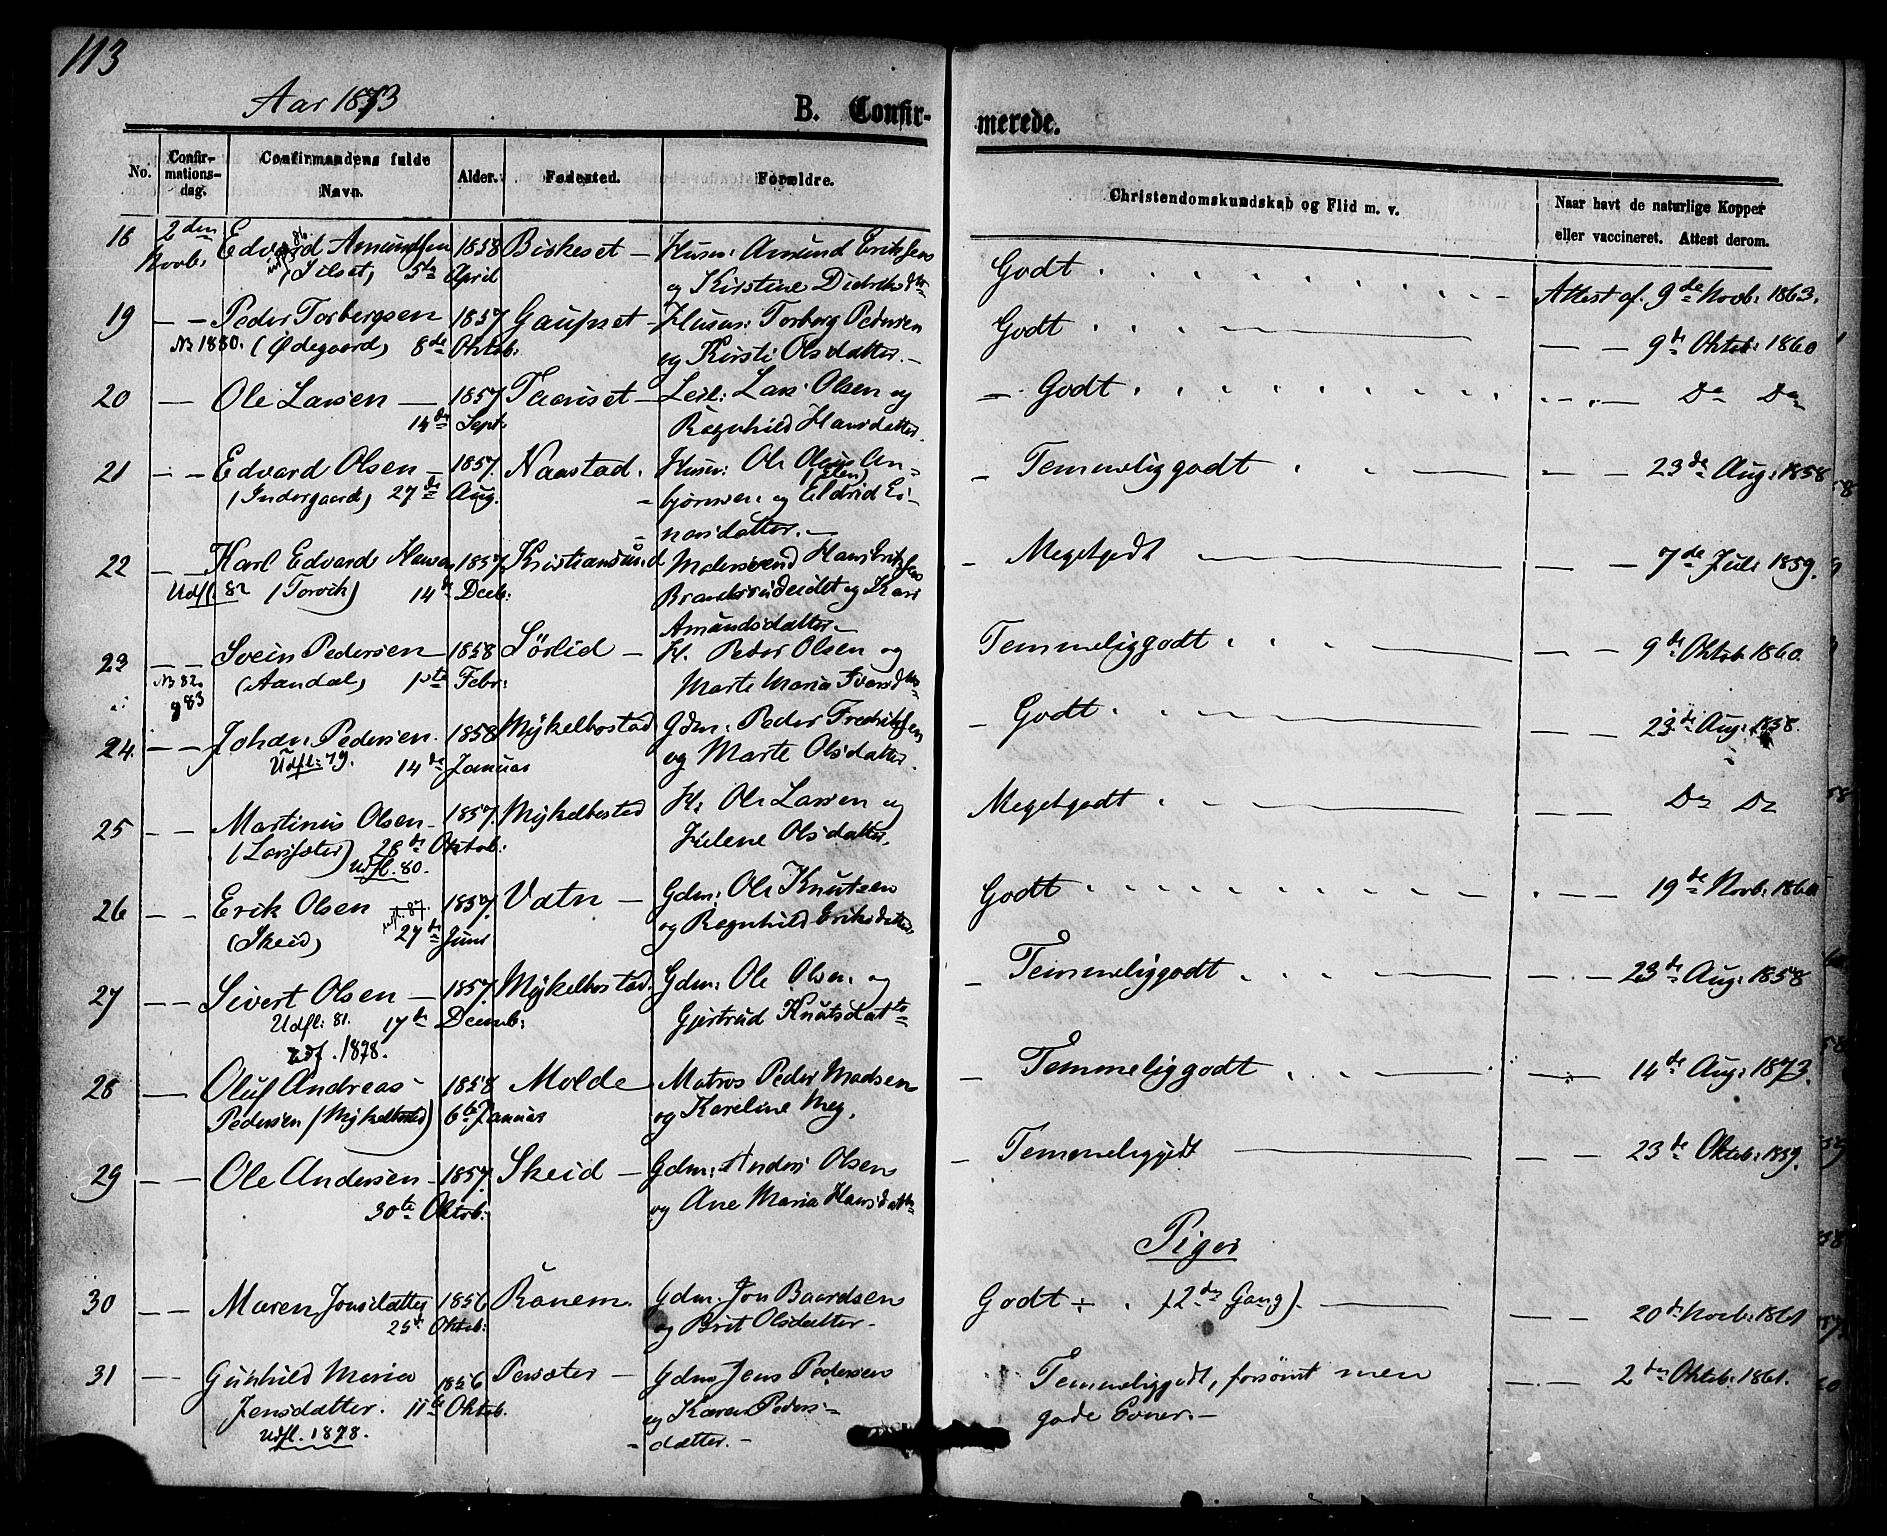 113
Aar 1873
B. Confir-
merede.
No.
Confir-
mations-
dag.
Confirmandens fulde
Navn.
Alder.
Fødested.
Forældre.
Christendomskundskab og Flid m. v.
Naar havt de naturlige Kopper
eller vaccineret. Attest derom.
18 2den Edvard Amundsen 1858 Biskeset — Husm: Amund Eriksen Godt
Novb: (Silset) 5te April og Kirstine Didriksd. Attest af. 9de Novb: 1863.
19 — — Peder Torbergsen 1857 Gaupset — Husm: Torberg Pedersen Godt — — 9de Oktob: 1860
No 1880. (Ødegaard) 8de Oktob: og Kirsti Olsdatter. —
20 — Ole Larsen — 1857 — Leil: Lars Olsen og — Godt — Do Do
14de Sept: Ragnhild Hansdatter.
21 — — Edvard Olsen — 1857. Naastad. Husm: Ole — Temmeliggodt — — 23de Aug: 1858
(Indergaard) 27de Aug. bjørnsen og Eldrid Ei-
narsdatter. —
22 — — Karl Edvard Hansen 1857 Kristiansund Hans Eriksen — Megetgodt — — 7de Juli 1859.
Udfl. 82 (Torvik) 14de Decb: og Kari
Amundsdatter —
23 — — Svein Pedersen — 1858 Sørlid — H. Peder Olsen og Temmeliggodt — — 9de Oktob 1860.
No 82. (Aandal) 1ste Febr: Marte Maria Ivarsd.
83
24. — — Johan Pedersen. 1858 Mykelbostad Gdm: Peder Fredriksen — Godt — — 23de Aug: 1858.
Udfl: 79. 14de Januar og Marte Olsdatter.
25 — — Martinus Olsen — 1857. Mykelbostad H: Ole Larsen og Megetgodt — — Do Do
28de Oktob: Helene Olsdatter.
Udfl. 80.
26 — — Erik Olsen 87. 1857. Vatn — Gdm: Ole Knutsen Godt — — 19de Novb: 1860
(Skeid) 27de Juni og Ragnhild Eriksdatter
27 — — Sivert Olsen — 1857. Mykelbostad. Gdm: Ole Olsen og — Temmeliggodt — — 23de Aug: 1858
Udfl: 81. 17de Decemb: Gjertrud Knutsdatter
Udf. 1878.
28 — — Oluf Andreas 1858 Molde Matros Peder Madsen — Temmeliggodt — — 14de Aug: 1873.
Pedersen (Mykelbostad) 6te Januar og Kareline Meg.
29 — — Ole Andersen — 1857. Skeid — Gdm: Anders Olsen — Temmeliggodt — — 23de Oktob: 1859.
30te Oktob: og Ane Maria Hansdatter
Piger
30 — — Maren Jonsdatter 1856 Ranem. Gdm. Jon Baardsen Godt ÷ . (2den Gang). — — 20de Novb: 1861
25de Oktob: og Brit Olsdatter —
31 — — Gunhild Maria 1856 Persæter — Gdm Jens Pedersen Temmeliggodt, forsømt men — — 2den Oktob. 1861.
Jensdatter. 11te Oktob. og Karen Peders- gode Evner. —
Udfl. 1878. datter. —